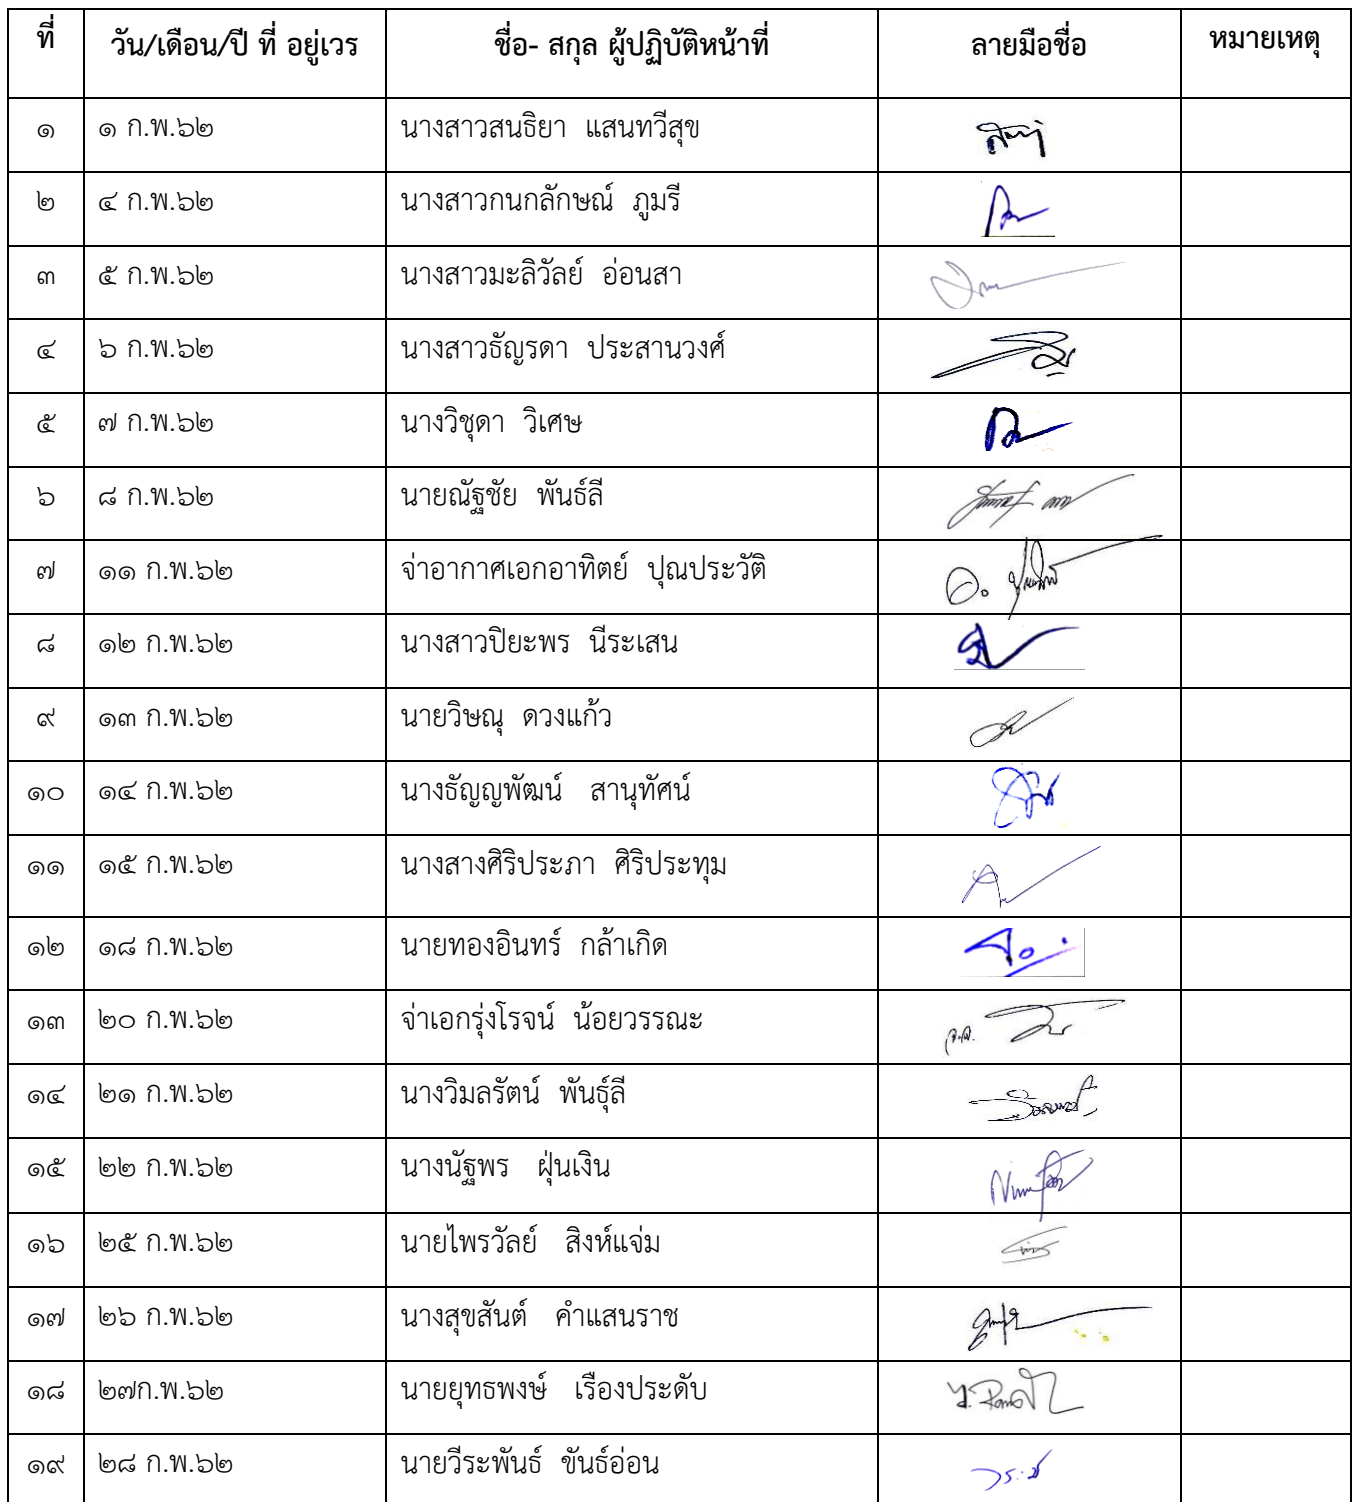 ที่ วัน/เดือน/ปี ที่ อยู่เวร ชื่อ- สกุล ผู้ปฏิบัติหน้าที่ ลายมือชื่อ หมายเหตุ
๑ ๑ ก.พ.๖๒ นางสาวสนธิยา แสนทวีสุข
๒ ๔ ก.พ.๖๒ นางสาวกนกลักษณ์ ภูมรี
๓ ๕ ก.พ.๖๒ นางสาวมะลิวัลย์ อ่อนสา
๔ ๖ ก.พ.๖๒ นางสาวธัญรดา ประสานวงศ์
๕ ๗ ก.พ.๖๒ นางวิชุดา วิเศษ
๖ ๘ ก.พ.๖๒ นายณัฐชัย พันธ์ลี
๗ ๑๑ ก.พ.๖๒ จ่าอากาศเอกอาทิตย์ ปุณประวัติ
๘ ๑๒ ก.พ.๖๒ นางสาวปิยะพร นีระเสน
๙ ๑๓ ก.พ.๖๒ นายวิษณุ ดวงแก้ว
๑๐ ๑๔ ก.พ.๖๒ นางธัญญพัฒน์ สานุทัศน์
๑๑ ๑๕ ก.พ.๖๒ นางสางศิริประภา ศิริประทุม
๑๒ ๑๘ ก.พ.๖๒ นายทองอินทร์ กล้าเกิด
๑๓ ๒๐ ก.พ.๖๒ จ่าเอกรุ่งโรจน์ น้อยวรรณะ
๑๔ ๒๑ ก.พ.๖๒ นางวิมลรัตน์ พันธุ์ลี
๑๕ ๒๒ ก.พ.๖๒ นางนัฐพร ฝุ่นเงิน
๑๖ ๒๕ ก.พ.๖๒ นายไพรวัลย์ สิงห์แจ่ม
๑๗ ๒๖ ก.พ.๖๒ นางสุขสันต์ คำแสนราช
๑๘ ๒๗ก.พ.๖๒ นายยุทธพงษ์ เรืองประดับ
๑๙ ๒๘ ก.พ.๖๒ นายวีระพันธ์ ขันธ์อ่อน